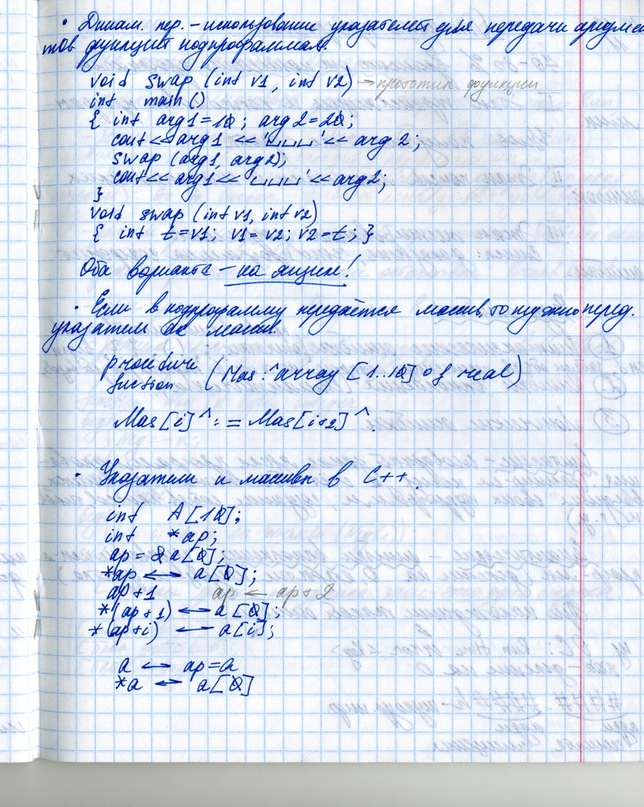 • Динам. пер. – использование указателей для передачи аргумен
тов функций подпрограммам.
void swap (int v1, int v2) → прототип функции
int main ()
{ int arg1=10; arg2=20;
cout<<arg1 <<'␣␣␣'<< arg2;
swap (arg1, arg2);
cout<<arg1<<'␣␣␣'<<arg2;
}
void swap (int v1, int v2)
{ int t=v1; v1=v2; v2=t; }
Оба варианта –
• Если в подпрограмму передаётся массив, то нужно перед.
указатель на массив.
procedure
fuction (Mas:^array [1..10] of real)
Mas[i]^:=Mas[i+2]^.
• Указатели и массивы в C++.
int A[10];
int *ap;
ap=&a[0];
*ap ↔ a[0];
ap+1 ap ← ap+2
*(ap+1) ↔ a[0];
*(ap+i) ← a[i];
a ↔ ap=a
*a ↔ a[0]